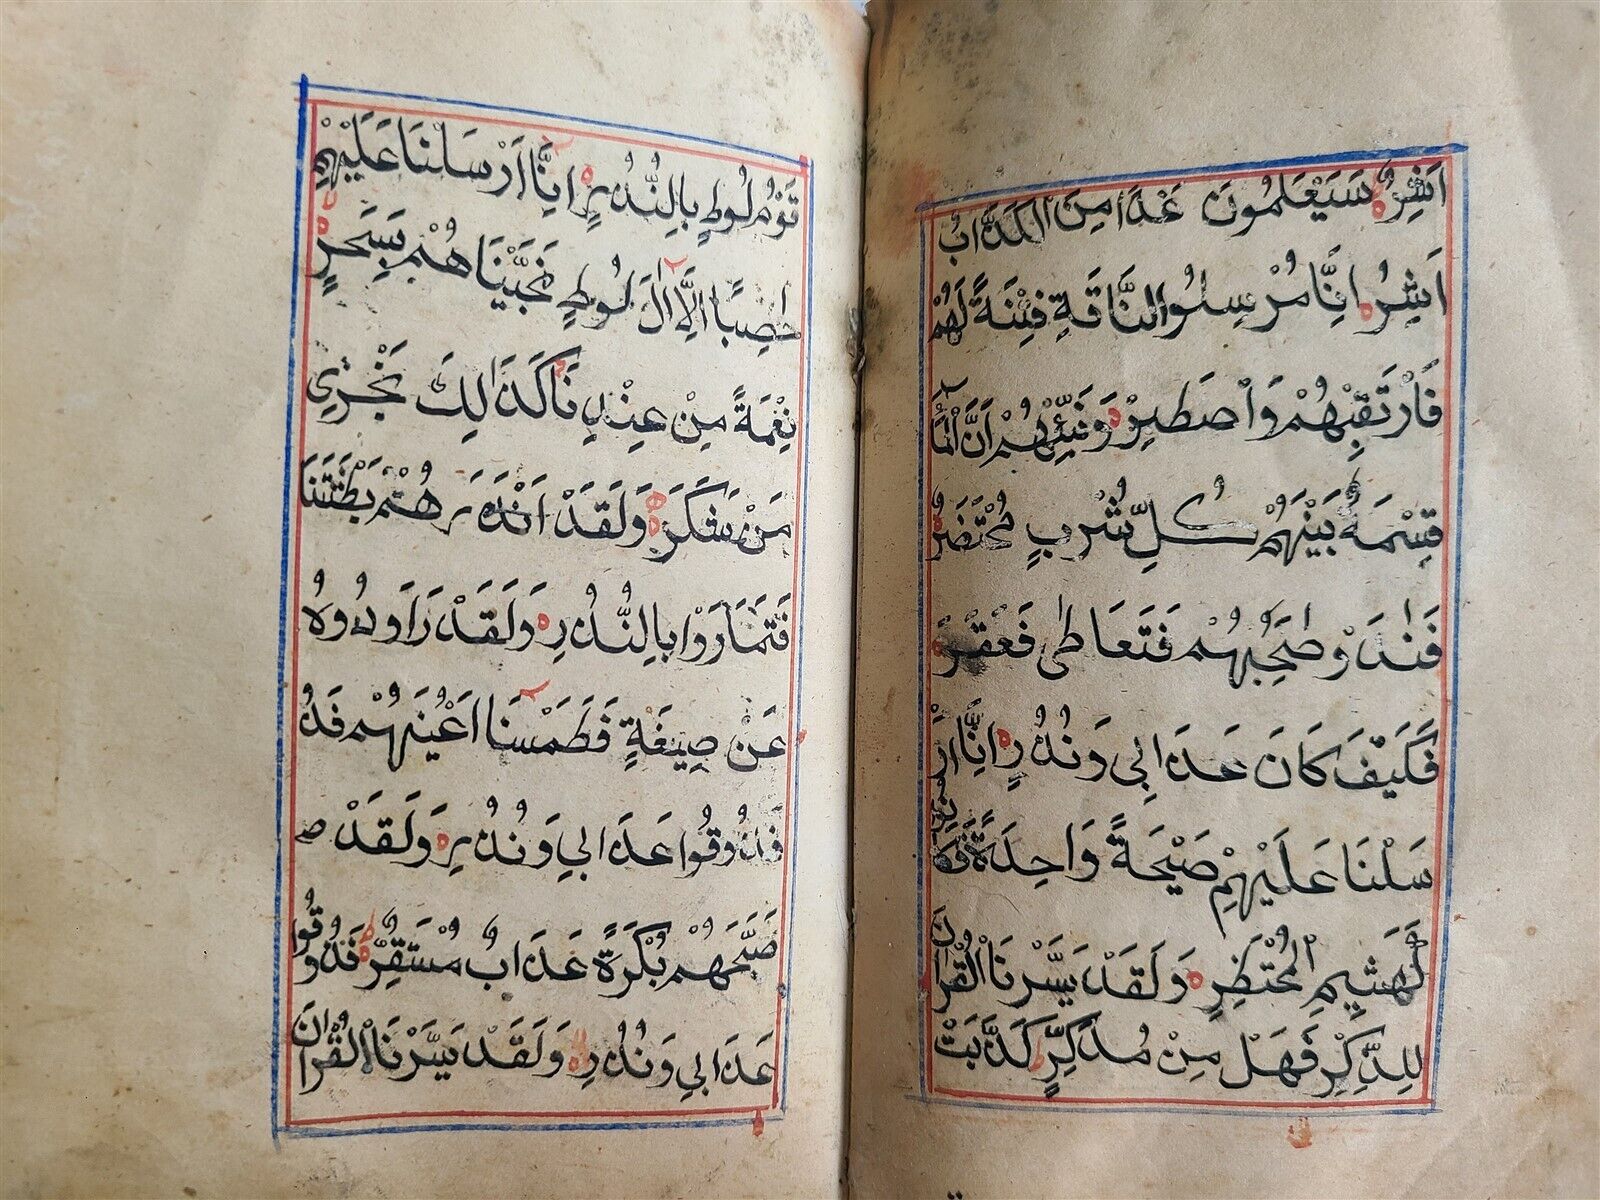 اَشِرٌ سَيَعْلَمُونَ غَدًا مِنَ الْكَذَّابُ
اَشِرُ اِنَّا مُرْسِلُوا النَّاقَةِ فِتْنَةً لَهُمْ
فَارْتَقِبْهُمْ وَاصْطَبِرْ وَنَبِّئْهُمْ اَنَّ الْمَآءَ
قِسْمَةٌ بَيْنَهُمْ كُلِّ شُرْبٍ مُحْتَضَرٌ
فَنَادَوْ صَٰحِبَهُمْ فَتَعَاطٰى فَعَقَرَ
فَكَيْفَ كَانَ عَذَابِي وَنُذُرِ اِنَّا اَرْ
سَلْنَا عَلَيْهِمْ صَيْحَةً وَاحِدَةً فَكَانُوْ
كَهَشِيمِ الْمُحْتَظِرِ وَلَقَدْ يَسَّرْنَا الْقُرْاٰنَ
لِلذِّكْرِ فَهَلْ مِنْ مُدَّكِرٍ كَذَّبَتْ
قَوْمُ لُوطٍ بِالنُّذُرِ اِنَّا اَرْسَلْنَا عَلَيْهِمْ
حَاصِبًا اِلَّا اٰلَ لُوطٍ نَجَّيْنَاهُمْ بِسَحَرٍ
نِعْمَةً مِنْ عِنْدِنَا كَذَالِكَ نَجْزِي
مَنْ شَكَرَ وَلَقَدْ اَنْذَرَهُمْ بَطْشَتَنَا
فَتَمَارَوْا بِالنُّذُرِ وَلَقَدْ رَاوَدُوهُ
عَنْ ضَيْفِهِ فَطَمَسْنَا اَعْيُنَهُمْ فَذُ
فَذُوقُوا عَذَابِي وَنُذُرِ وَلَقَدْ صـ
صَبَّحَهُمْ بُكْرَةً عَذَابٌ مُسْتَقِرٌّ فَذُوقُوا
عَذَابِي وَنُذُرِ وَلَقَدْ يَسَّرْنَا الْقُرْاٰنَ